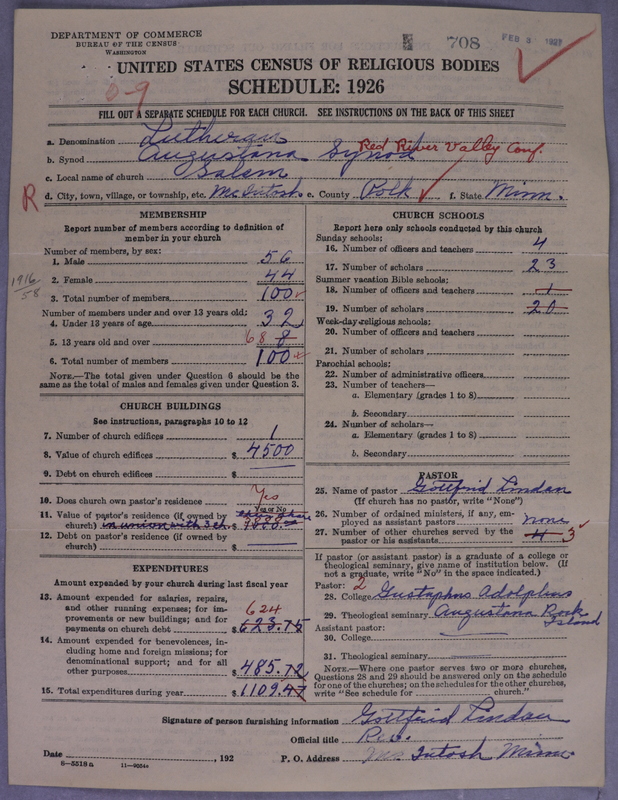 DEPARTMENT OF COMMERCE
BUREAU OF THE CENSUS
WASHINGTON
708
FEB 3 1927
UNITED STATES CENSUS OF RELIGIOUS BODIES
SCHEDULE: 1926
0-9
FILL OUT A SEPARATE SCHEDULE FOR EACH CHURCH. SEE INSTRUCTIONS ON THE BACK OF THIS SHEET
a. Denomination Lutheran
b. Synod Augustana Synod Red River Valley Conf.
c. Local name of church Salem
R d. City, town, village, or township, etc. McIntosh e. County Polk f. State Minn.
MEMBERSHIP
Report number of members according to definition of
member in your church
Number of members, by sex:
1. Male 56
2. Female 44
1916/58
3. Total number of members 100
Number of members under and over 13 years old:
4. Under 13 years of age 32
5. 13 years old and over 68
6. Total number of members 100
NOTE.—The total given under Question 6 should be
same as the total of males and females given under Question 3.
CHURCH BUILDINGS
See instructions, paragraphs 10 to 12
7. Number of church edifices 1
8. Value of church edifices $ 4500
9. Debt on church edifices $
10. Does church own pastor's residence Yes
Yes or No
11. Value of pastor's residence (if owned by
church) in union with 3 ch. $
12. Debt on pastor's residence (if owned by
church) $
EXPENDITURES
Amount expended by your church during last fiscal year
13. Amount expended for salaries, repairs,
and other running expenses; for im-
provements or new buildings; and for
payments on church debt $ 623.75
624
14. Amount expended for benevolences, in-
cluding home and foreign missions; for
denominational support; and for all
other purposes $ 485.72
15. Total expenditures during year $ 1109.47
CHURCH SCHOOLS
Report here only schools conducted by this church
Sunday schools:
16. Number of officers and teachers 4
17. Number of scholars 23
Summer vacation Bible schools:
18. Number of officers and teachers 1
19. Number of scholars 20
Week-day religious schools:
20. Number of officers and teachers
21. Number of scholars
Parochial schools:
22. Number of administrative officers
23. Number of teachers—
a. Elementary (grades 1 to 8)
b. Secondary
24. Number of scholars—
a. Elementary (grades 1 to 8)
b. Secondary
PASTOR
25. Name of pastor Gottfrid Lindau
(If church has no pastor, write "None")
26. Number of ordained ministers, if any, em-
ployed as assistant pastors none
27. Number of other churches served by the
pastor or his assistants 4 3
If pastor (or assistant pastor) is a graduate of a college or
theological seminary, give name of institution below. (If
not a graduate, write "No" in the space indicated.)
Pastor: 2
28. College Gustaphus Adolphus
29. Theological seminary Augustana Rock
Island
Assistant pastor:
30. College
31. Theological seminary
NOTE.—Where one pastor serves two or more churches,
Questions 28 and 29 should be answered only on the schedule
for one of the churches; on the schedules for the other churches,
write "See schedule for church."
Signature of person furnishing information Gottfrid Lindau
Official title Rev.
Date , 192 P. O. Address McIntosh Minn
6-5518a 11-9034a